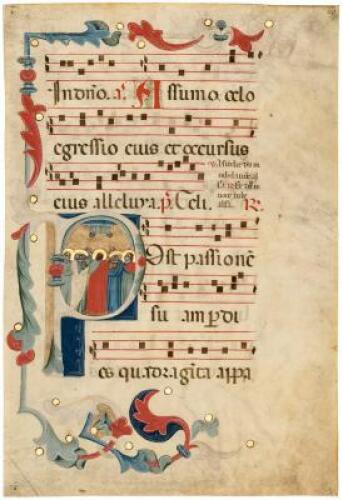 In dño. a. A ssumo celo
egressio eius et occursus
eius alleluya. p. Celi. R.
Post passionē
su am p di
es quadragīta appa